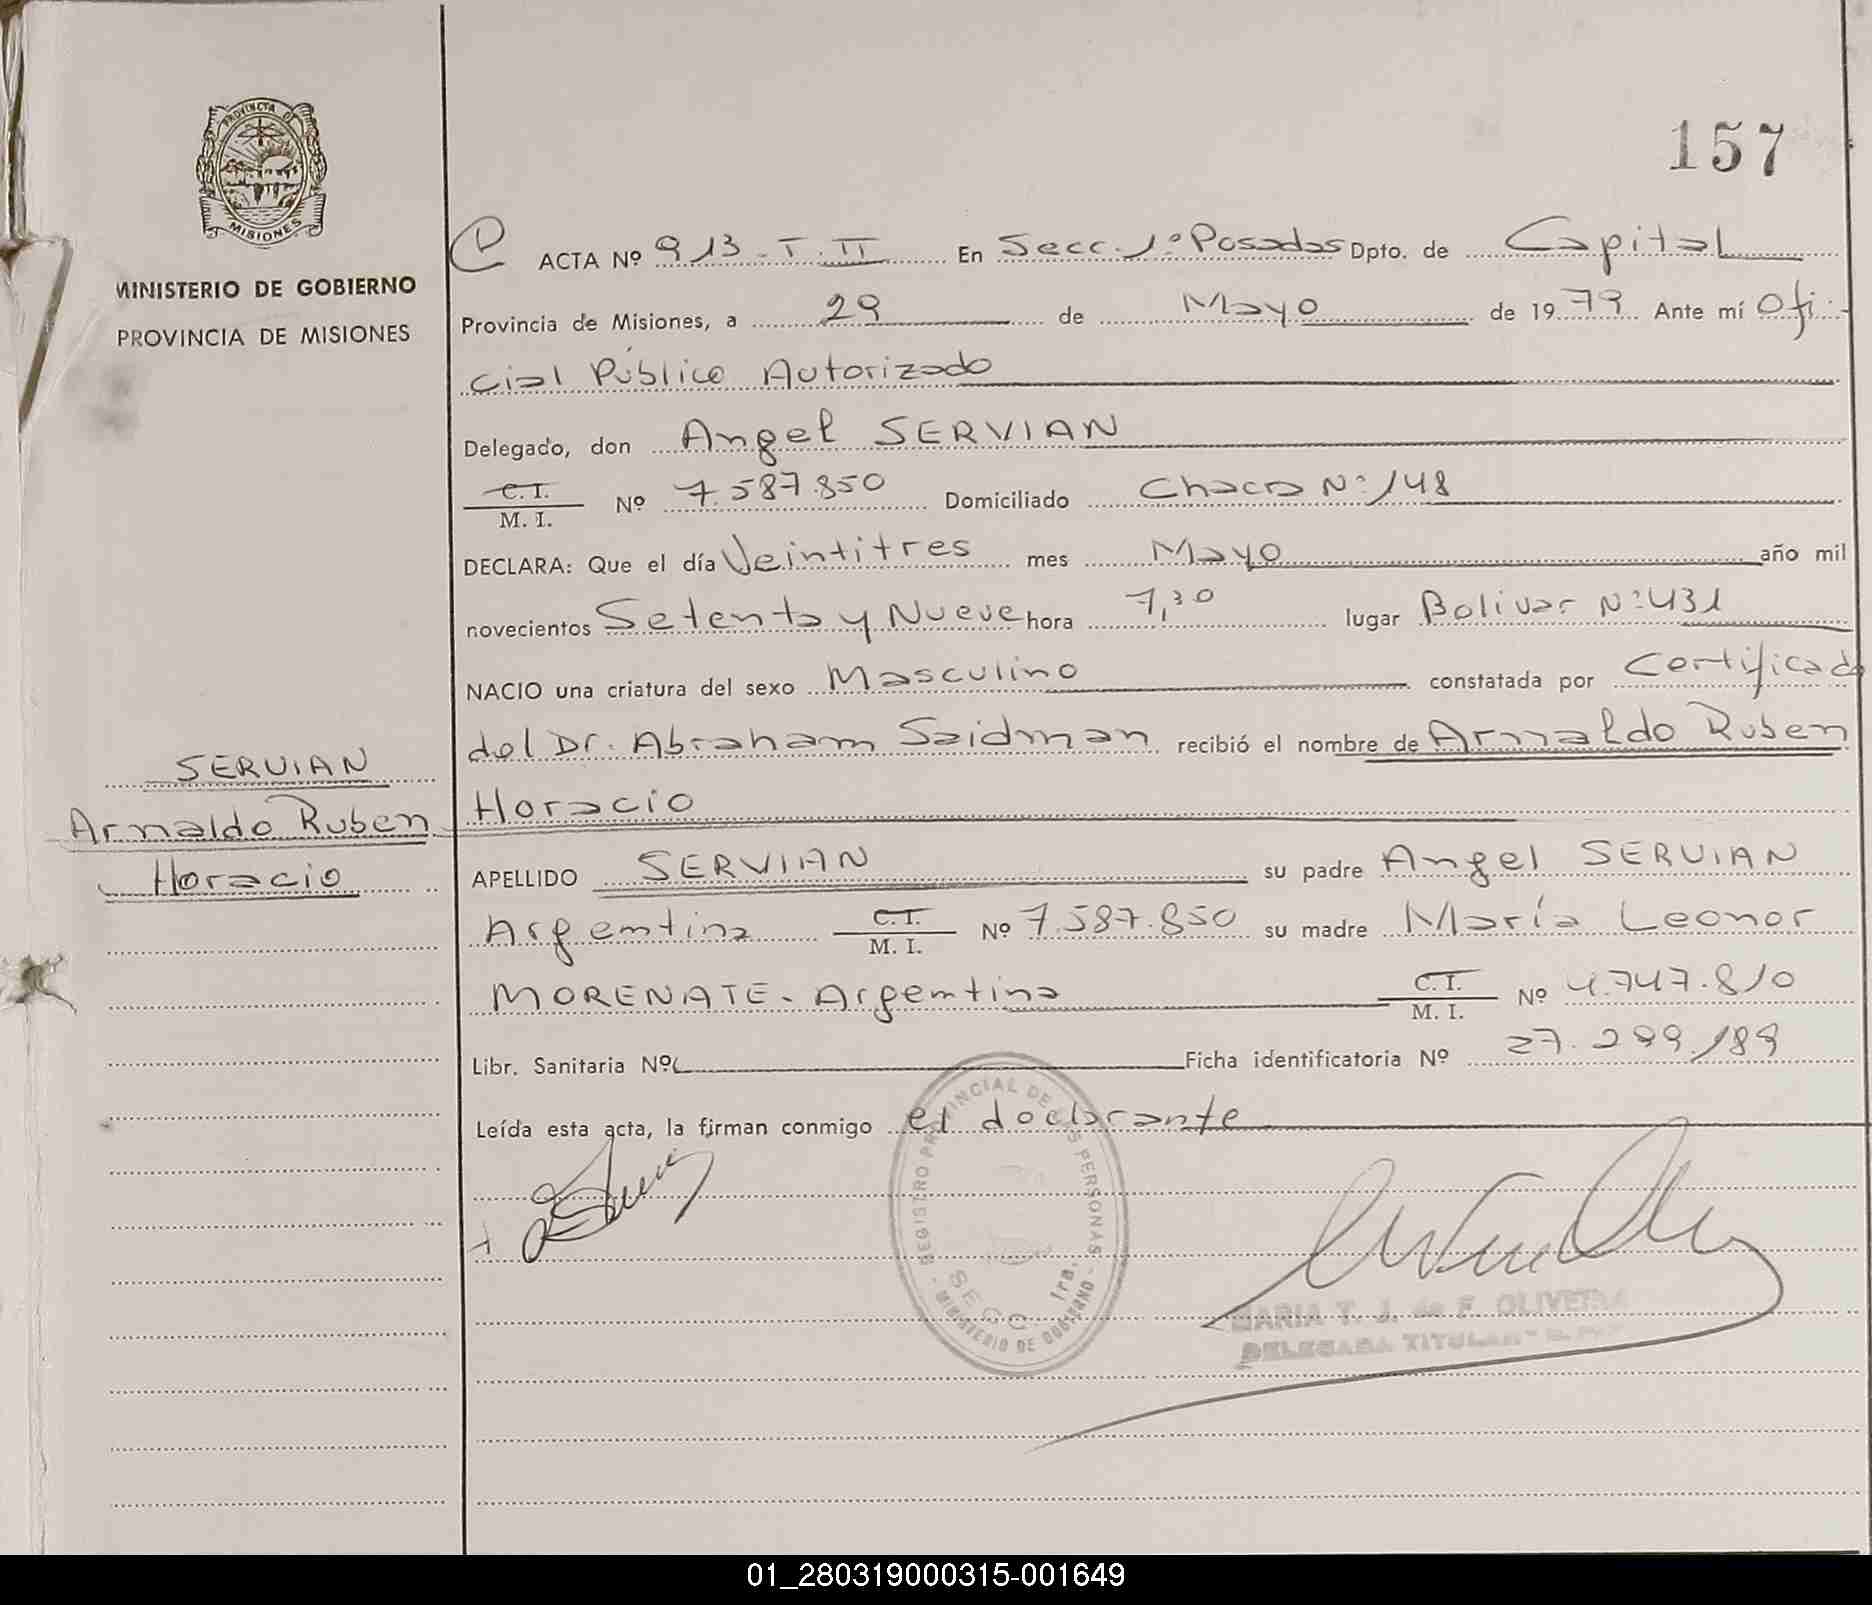 157
PROVINCIA DE
MISIONES
MINISTERIO DE GOBIERNO
PROVINCIA DE MISIONES
ACTA Nº 913 - T. II En Secc. 1º Posadas Dpto. de Capital
Provincia de Misiones, a 29 de Mayo de 1979 Ante mí Ofi-
cial Público Autorizado
Delegado, don Angel SERVIAN
C.I. / M. I. Nº 7.587.850 Domiciliado Chacra Nº 148
DECLARA: Que el día Veintitres mes Mayo año mil
novecientos Setenta y Nueve hora 7,30 lugar Bolivar Nº 431
NACIO una criatura del sexo Masculino constatada por Certificado
del Dr. Abraham Saidman recibió el nombre de Arnaldo Ruben
Horacio
SERVIAN
Arnaldo Ruben
Horacio
APELLIDO SERVIAN su padre Angel SERVIAN
Argentina C.I. / M. I. Nº 7.587.850 su madre María Leonor
MORENATE - Argentina C.I. / M. I. Nº 4.747.810
Libr. Sanitaria Nº Ficha identificatoria Nº 27.299.189
Leída esta acta, la firman conmigo el declarante
REGISTRO PROVINCIAL DE LAS PERSONAS - MINISTERIO DE GOBIERNO -
SECC. 1ra.
MARIA T. J. de F. OLIVEIRA
DELEGADA TITULAR
01_280319000315-001649